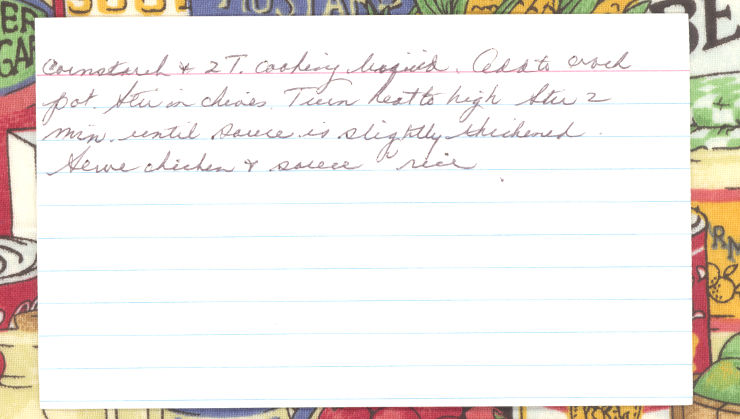 BER
GAR
MUSTAR
E
cornstarch & 2 T. cooking liquid. Add to crock
pot. Stir in chives. Turn heat to high Stir 2
min. until sauce is slightly thickened.
Serve chicken & sauce rice
RM